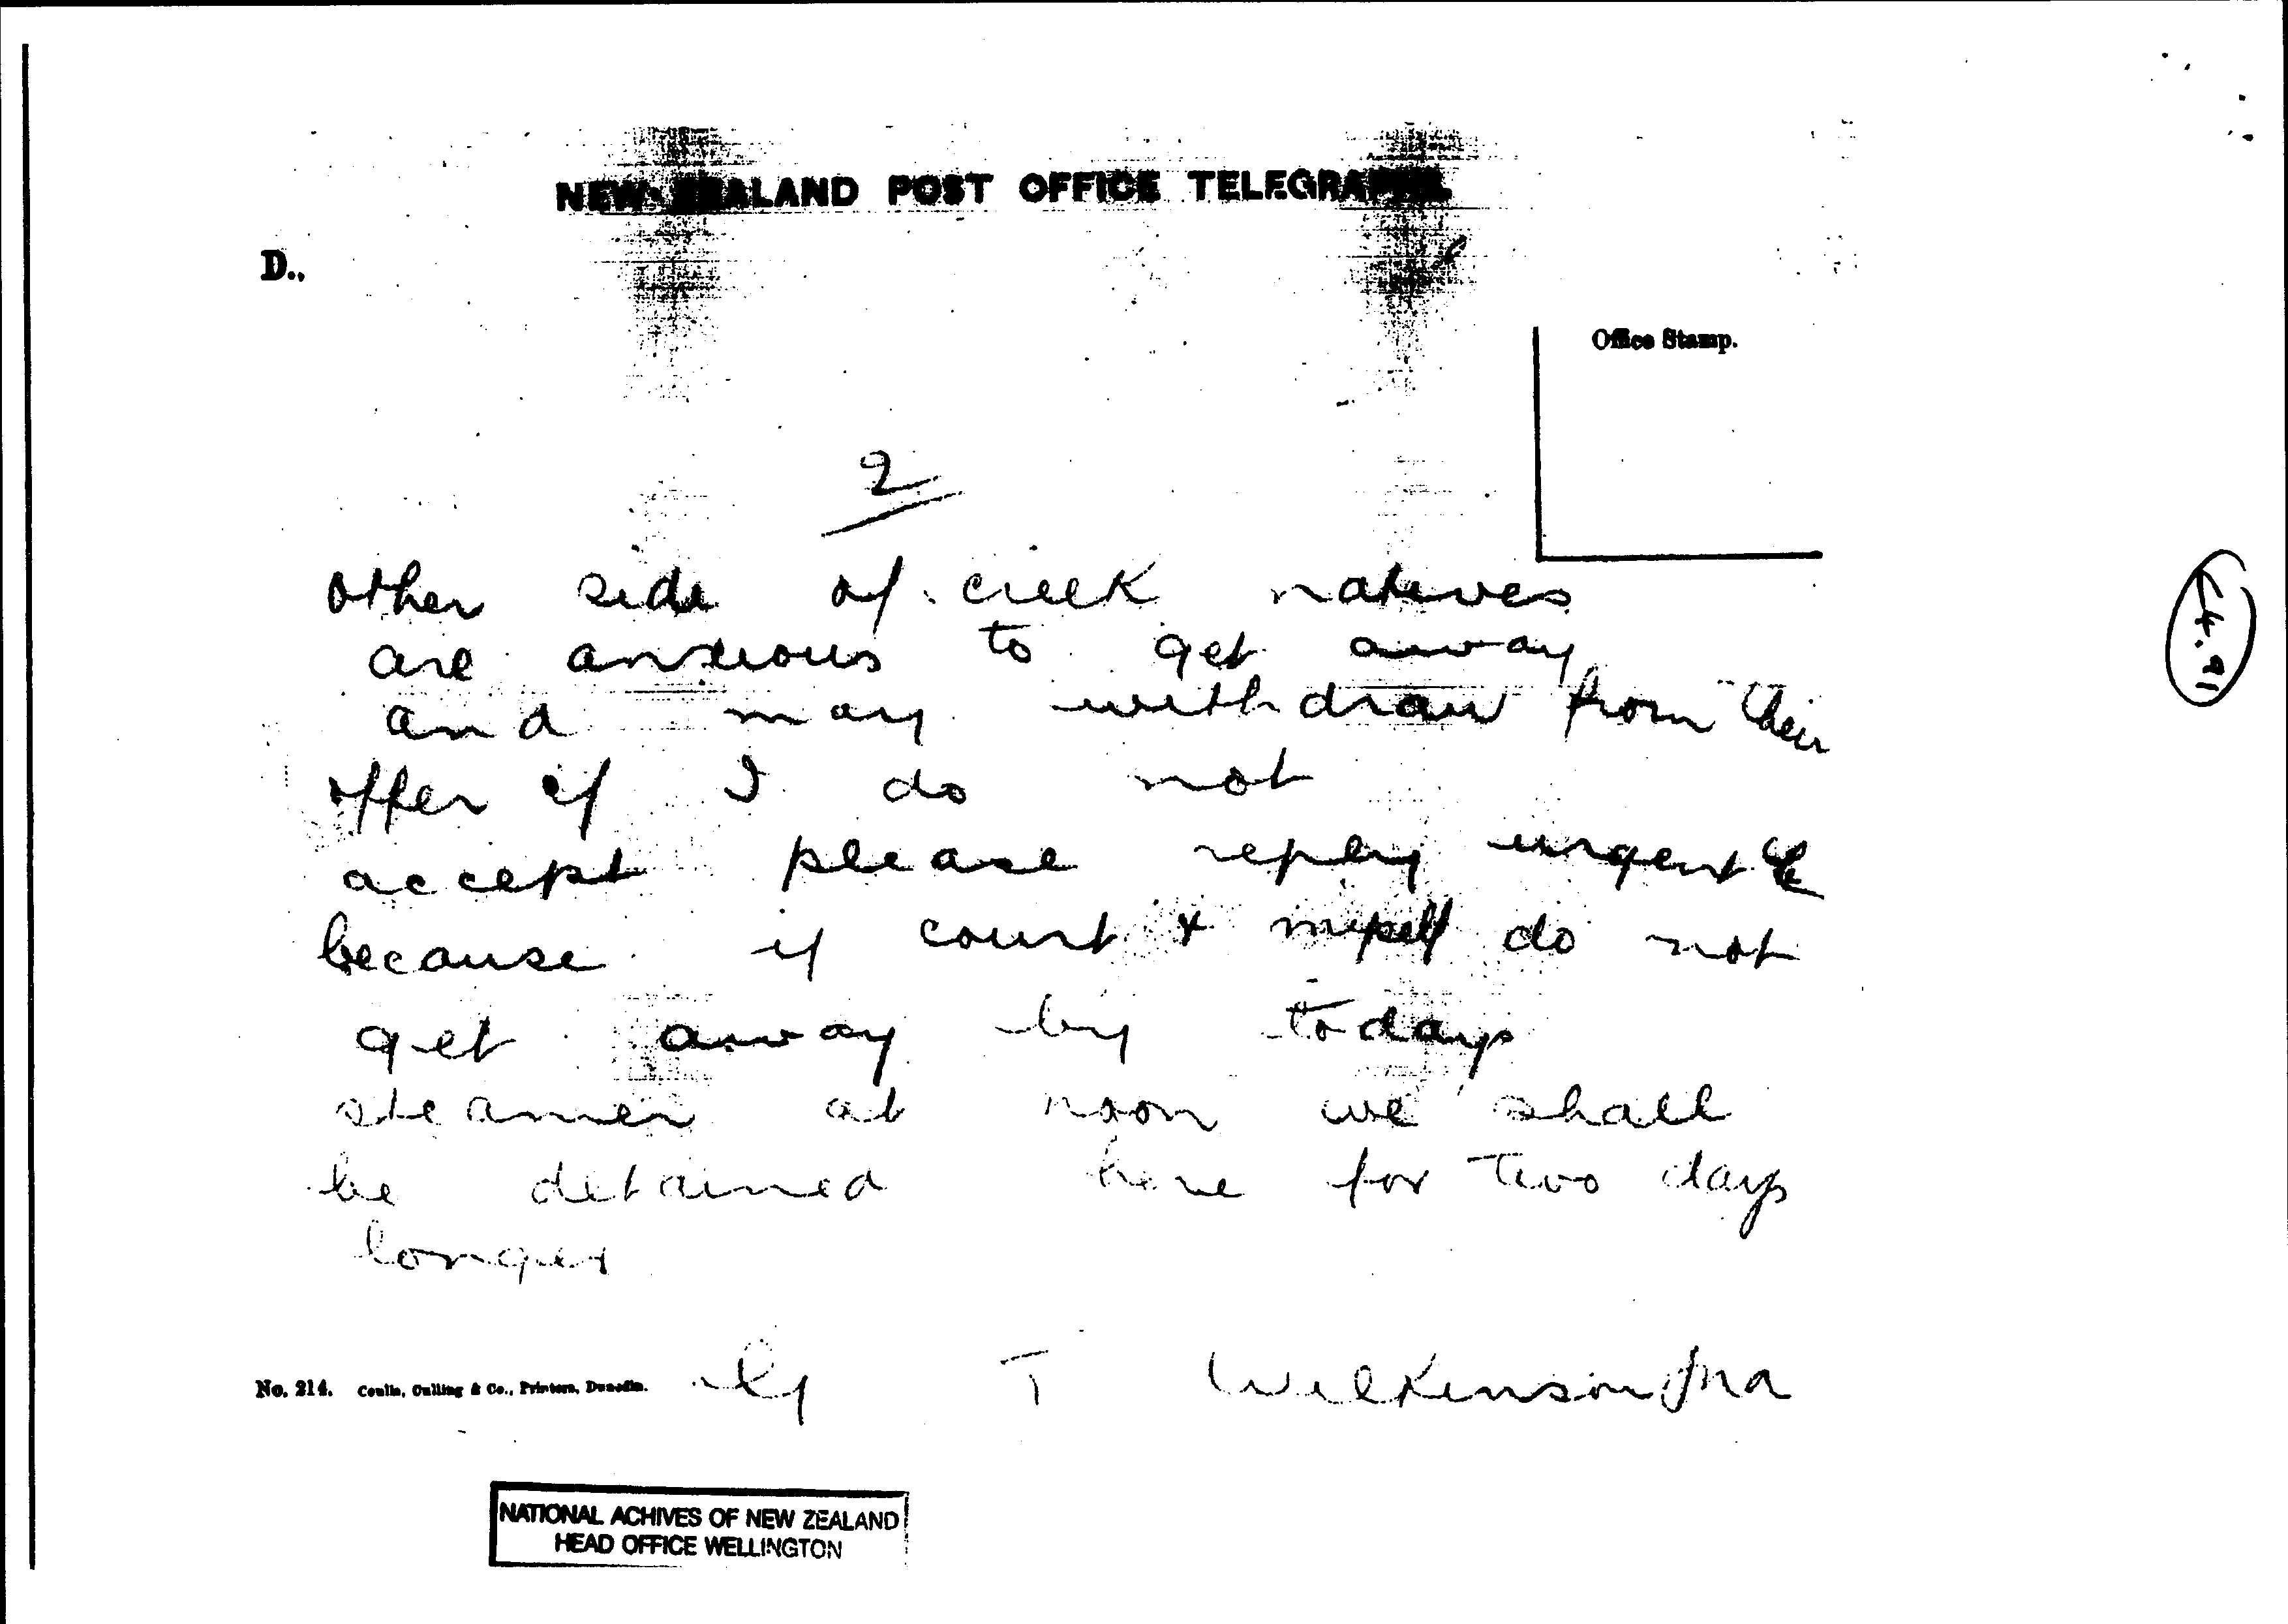 NEW ZEALAND POST OFFICE TELEGRAPHS.
D..
Office Stamp.
2
other side of creek natives
are anxious to get away
and may withdraw from their
offer if I do not
accept please reply urgent
because if court & myself do not
get away by todays
steamer at noon we shall
be detained here for two days
longer
G T Wilkinson
No. 214. Coulls, Culling & Co., Printers, Dunedin.
NATIONAL ACHIVES OF NEW ZEALAND
HEAD OFFICE WELLINGTON